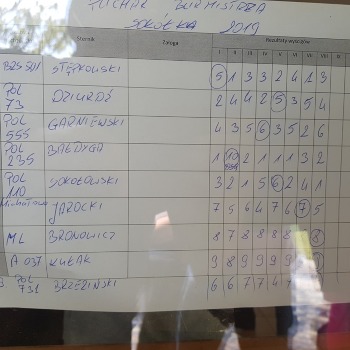 PUCHAR BURMISTRZA
SOKÓŁKA 2019
Sternik Załoga Wyniki wyścigów
I II III IV V VI VII VIII
STĘPKOWSKI 5 1 3 3 2 4 1 3
POL 73 DZIURDŹ 2 4 4 2 5 3 5 4
POL 555 GARNIEWSKI 4 3 5 6 3 5 2 6
POL 235 BAŁDYGA 1 10 2 1 1 1 3 2
POL 110 SOKOŁOWSKI 3 2 1 5 6 2 4 1
JAROCKI 7 5 6 4 7 6 7 5
ML BRONOWICZ 8 7 8 8 8 8 8
A 037 KUŁAK 9 8 9 9 9 9
POL 731 BRZEZIŃSKI 6 6 7 7 4 7